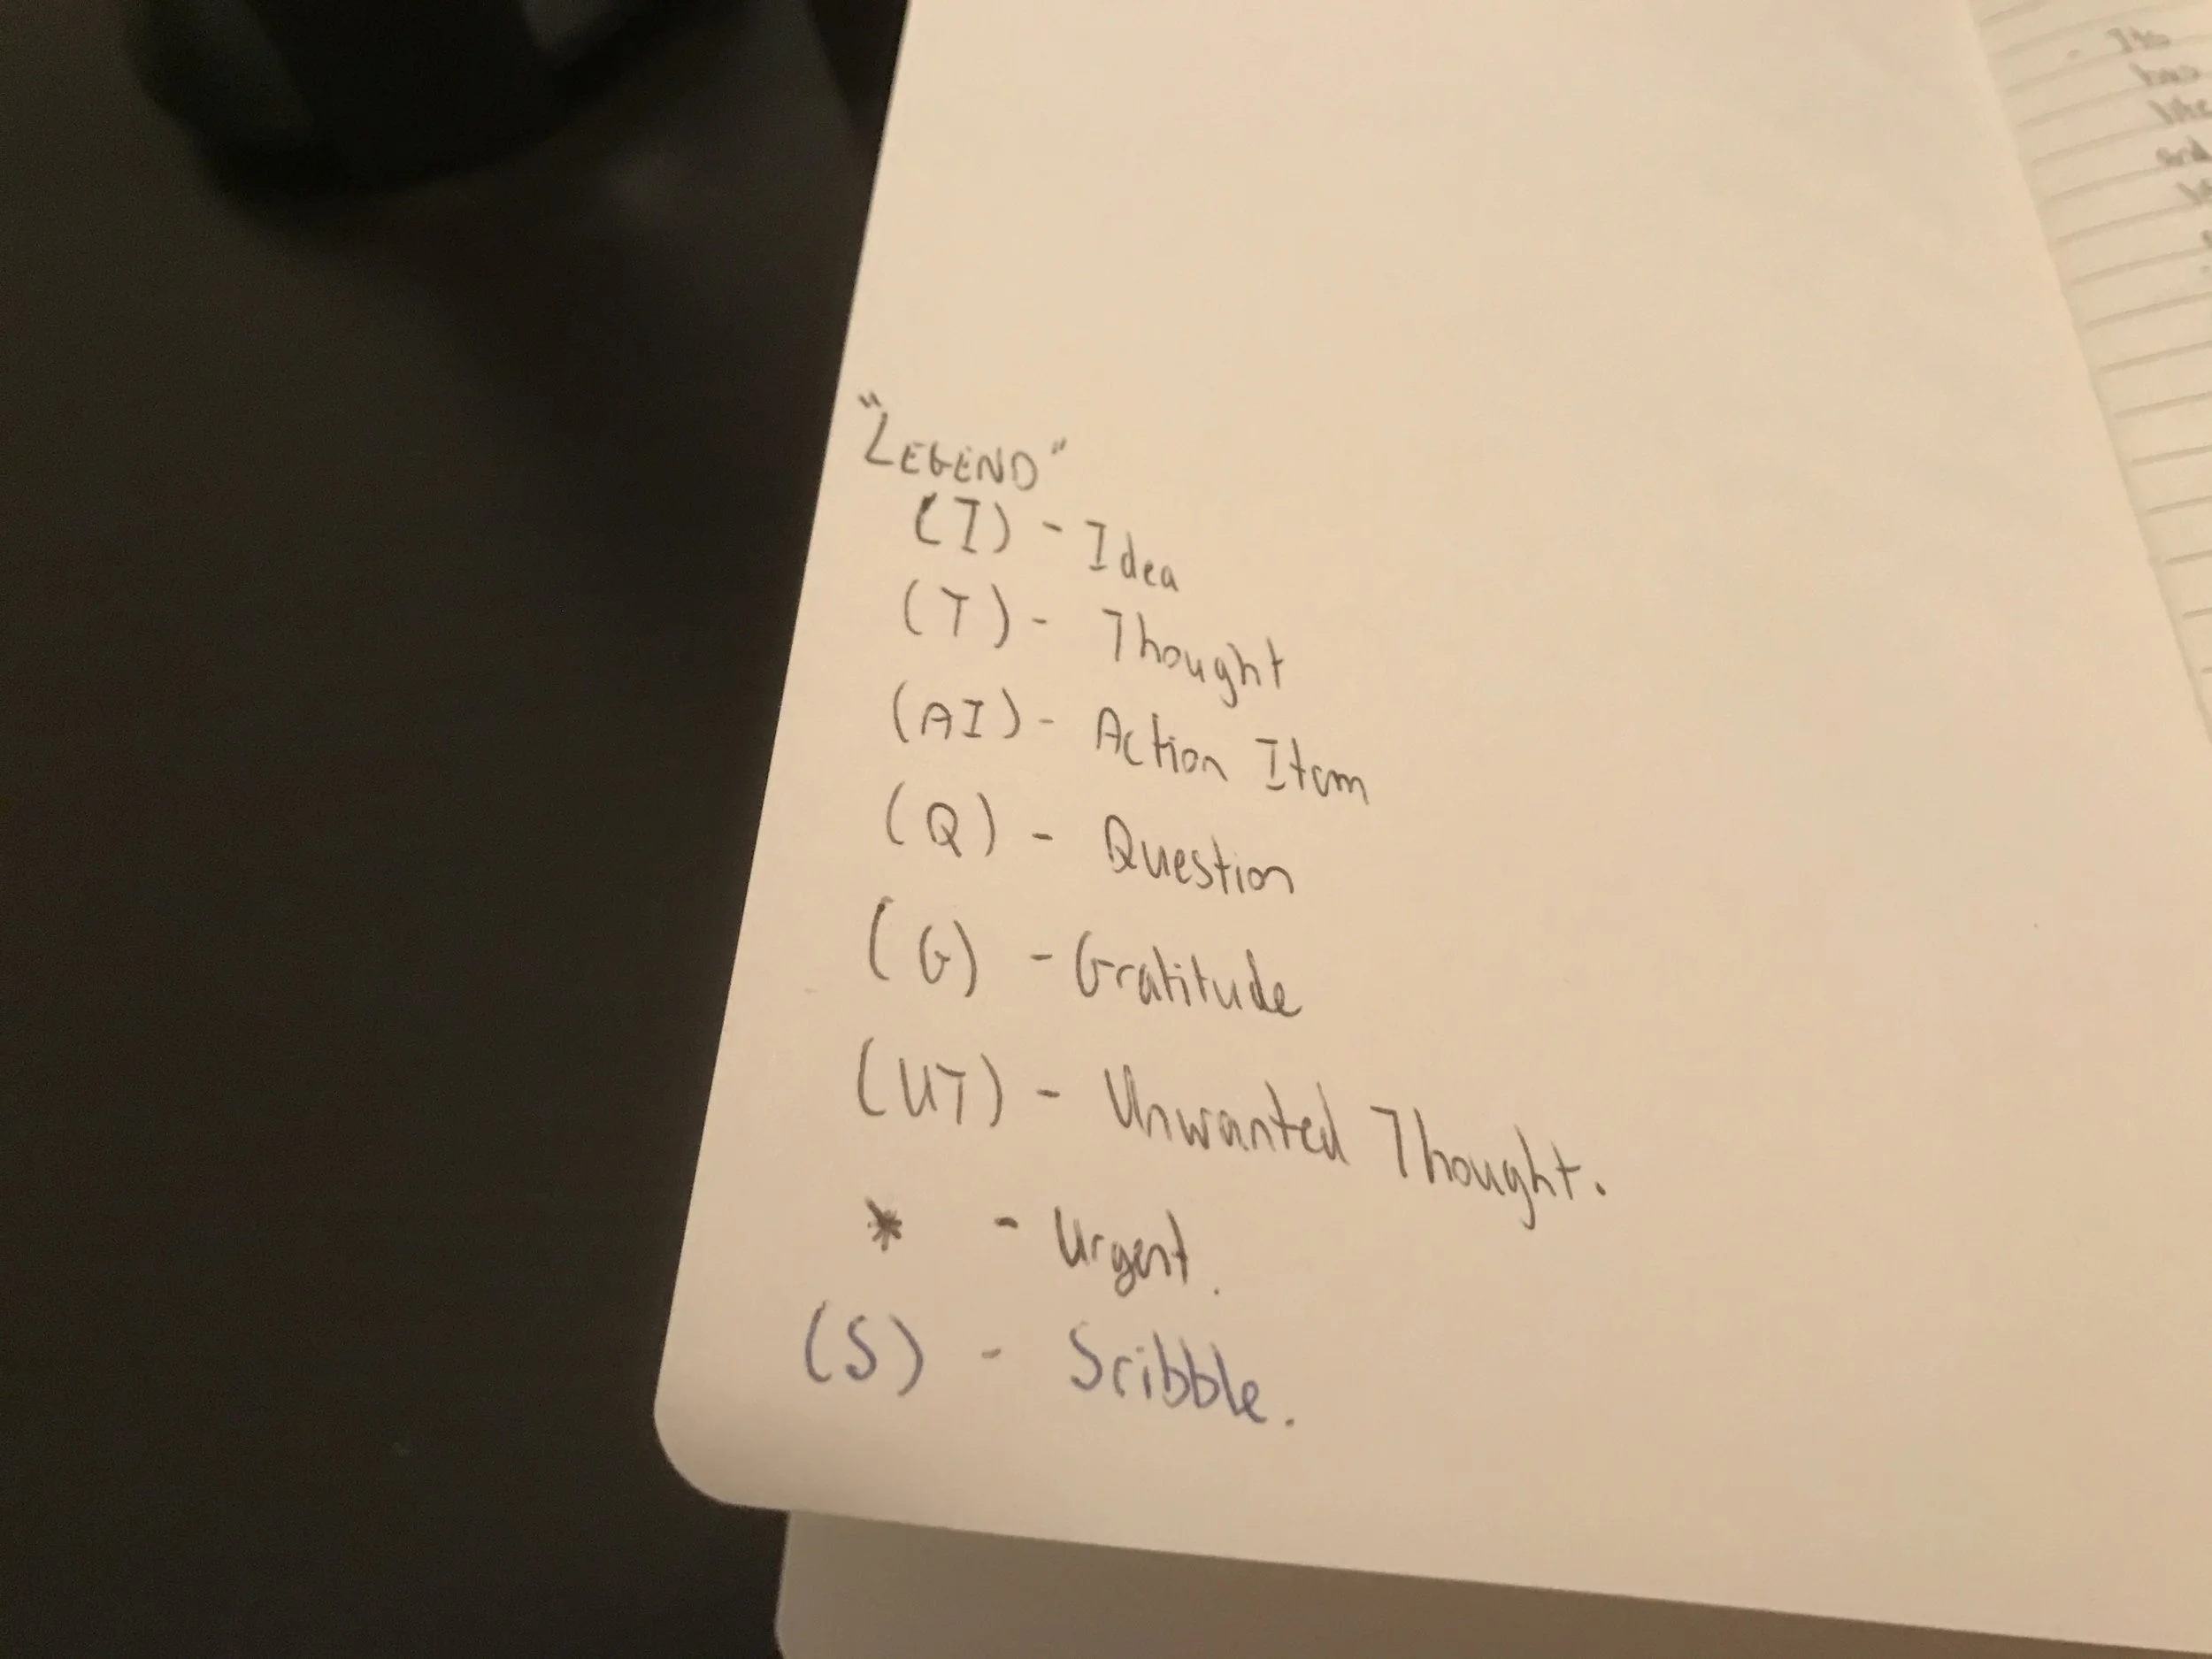 "LEGEND"
(I) - Idea
(T) - Thought
(AI) - Action Item
(Q) - Question
(G) - Gratitude
(UT) - Unwanted Thought.
* - Urgent.
(S) - Scribble.
Its
has
and